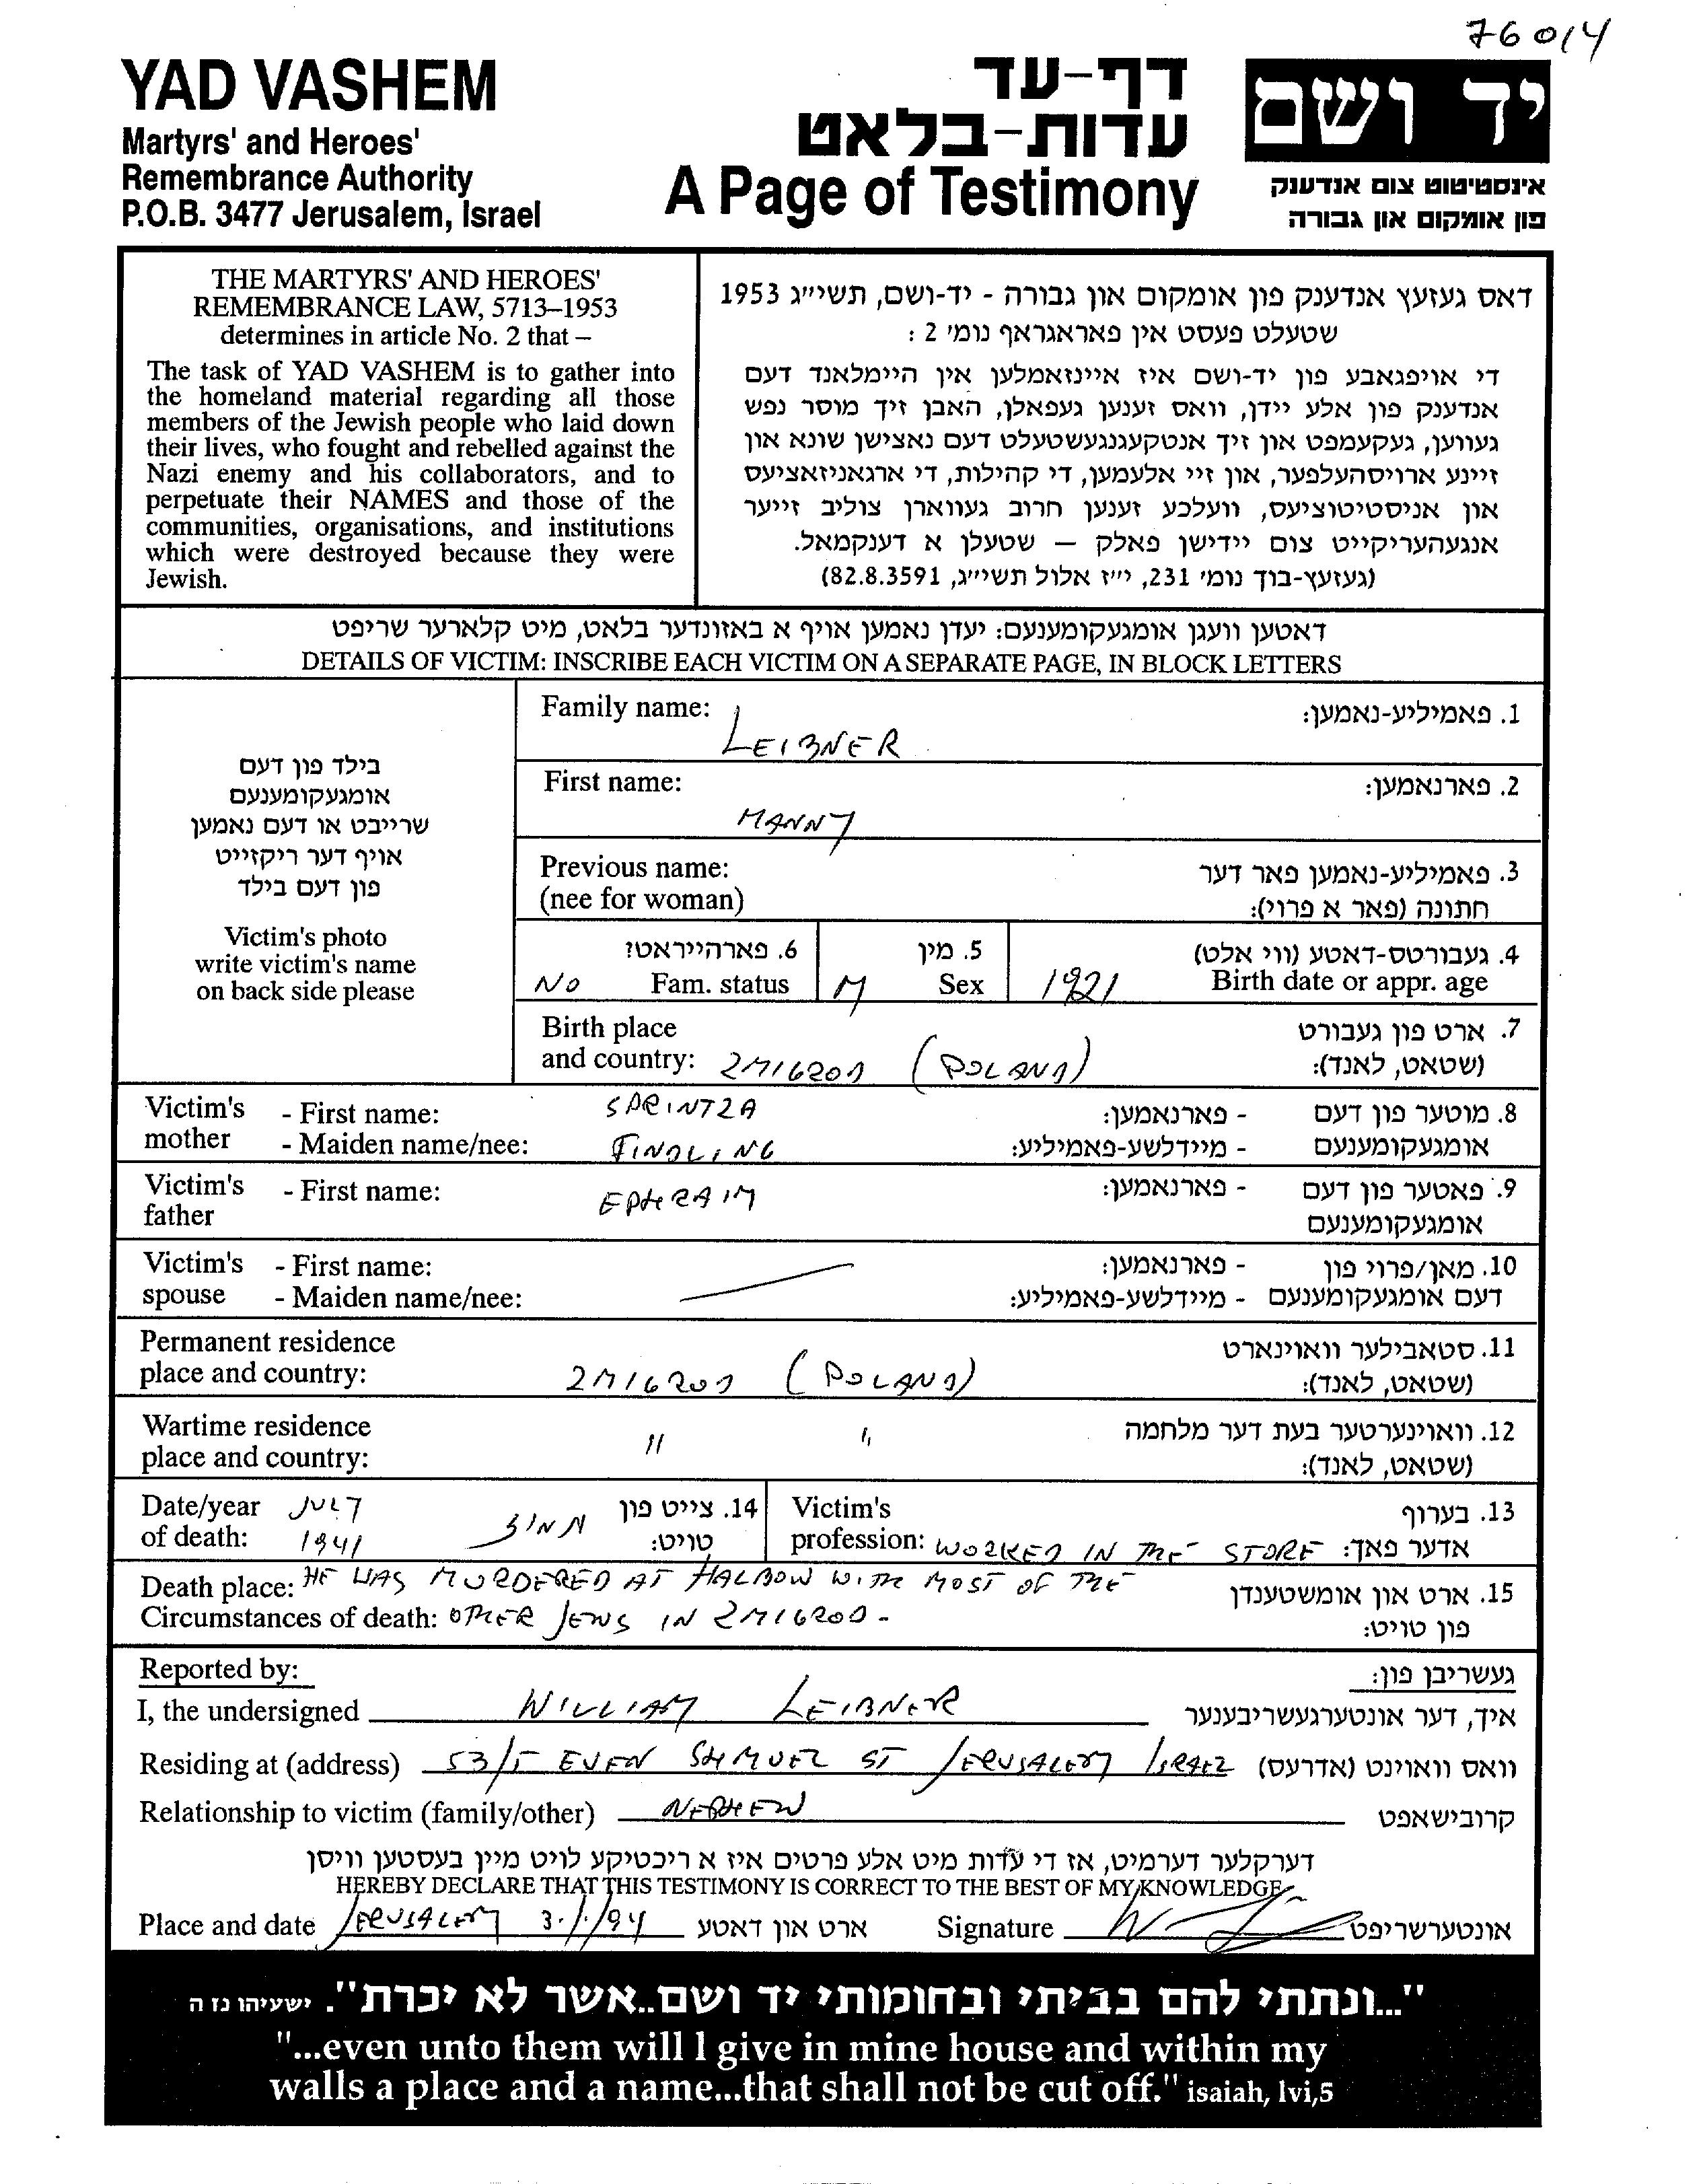 76014
YAD VASHEM
Martyrs' and Heroes'
Remembrance Authority
P.O.B. 3477 Jerusalem, Israel
דף-עד
עדות-בלאט
A Page of Testimony
יד ושם
אינסטיטוט צום אנדענק
פון אומקום און גבורה
THE MARTYRS' AND HEROES'
REMEMBRANCE LAW, 5713–1953
determines in article No. 2 that –
The task of YAD VASHEM is to gather into
the homeland material regarding all those
members of the Jewish people who laid down
their lives, who fought and rebelled against the
Nazi enemy and his collaborators, and to
perpetuate their NAMES and those of the
communities, organisations, and institutions
which were destroyed because they were
Jewish.
דאס געזעץ אנדענק פון אומקום און גבורה - יד-ושם, תשי״ג 1953
שטעלט פעסט אין פאראגראף נומ׳ 2 :
די אויפגאבע פון יד-ושם איז איינזאמלען אין היימלאנד דעם
אנדענק פון אלע יידן, וואס זענען געפאלן, האבן זיך מוסר נפש
געווען, געקעמפט און זיך אנטקעגנגעשטעלט דעם נאצישן שונא און
זיינע ארויסהעלפער, און זיי אלעמען, די קהילות, די ארגאניזאציעס
און אניסטיטוציעס, וועלכע זענען חרוב געווארן צוליב זייער
אנגעהעריקייט צום יידישן פאלק — שטעלן א דענקמאל.
(געזעץ-בוך נומ׳ 231, י״ז אלול תשי״ג, 82.8.3591)
דאטען וועגן אומגעקומענעם: יעדן נאמען אויף א באזונדער בלאט, מיט קלארער שריפט
DETAILS OF VICTIM: INSCRIBE EACH VICTIM ON A SEPARATE PAGE, IN BLOCK LETTERS
בילד פון דעם
אומגעקומענעם
שרייבט או דעם נאמען
אויף דער ריקזייט
פון דעם בילד
Victim's photo
write victim's name
on back side please
Family name: LEIBNER 1. פאמיליע-נאמען:
First name: MANNY 2. פארנאמען:
Previous name: 3. פאמיליע-נאמען פאר דער
(nee for woman) חתונה (פאר א פרוי):
6. פארהייראט? 5. מין 4. געבורטס-דאטע (ווי אלט)
NO Fam. status M Sex 1921 Birth date or appr. age
Birth place 7. ארט פון געבורט
and country: ZMIGROD (POLAND) (שטאט, לאנד):
Victim's - First name: SPRINTZA - פארנאמען: 8. מוטער פון דעם
mother - Maiden name/nee: FINDLING - מיידלשע-פאמיליע: אומגעקומענעם
Victim's - First name: EPHRAIM - פארנאמען: 9. פאטער פון דעם
father אומגעקומענעם
Victim's - First name: - פארנאמען: 10. מאן/פרוי פון
spouse - Maiden name/nee: - מיידלשע-פאמיליע: דעם אומגעקומענעם
Permanent residence 11. סטאבילער וואוינארט
place and country: ZMIGROD (POLAND) (שטאט, לאנד):
Wartime residence " " 12. וואוינערטער בעת דער מלחמה
place and country: (שטאט, לאנד):
Date/year JULY 14. צייט פון Victim's 13. בערוף
of death: 1941 טויט: profession: WORKED IN THE STORE אדער פאך:
Death place: HE WAS MURDERED AT HALBOW WITH MOST OF THE 15. ארט און אומשטענדן
Circumstances of death: OTHER JEWS IN ZMIGROD - פון טויט:
Reported by: געשריבן פון:
I, the undersigned WILLIAM LEIBNER איך, דער אונטערגעשריבענער
Residing at (address) 53/5 EVEN SHMUEL ST JERUSALEM ISRAEL וואס וואוינט (אדרעס)
Relationship to victim (family/other) NEPHEW קרובישאפט
דערקלער דערמיט, אז די עדות מיט אלע פרטים איז א ריכטיקע לויט מיין בעסטען וויסן
HEREBY DECLARE THAT THIS TESTIMONY IS CORRECT TO THE BEST OF MY KNOWLEDGE
Place and date JERUSALEM 3.1/94 ארט און דאטע Signature אונטערשריפט
"...ונתתי להם בביתי ובחומותי יד ושם..אשר לא יכרת". ישעיהו נז ה
"...even unto them will I give in mine house and within my
walls a place and a name...that shall not be cut off." isaiah, lvi,5